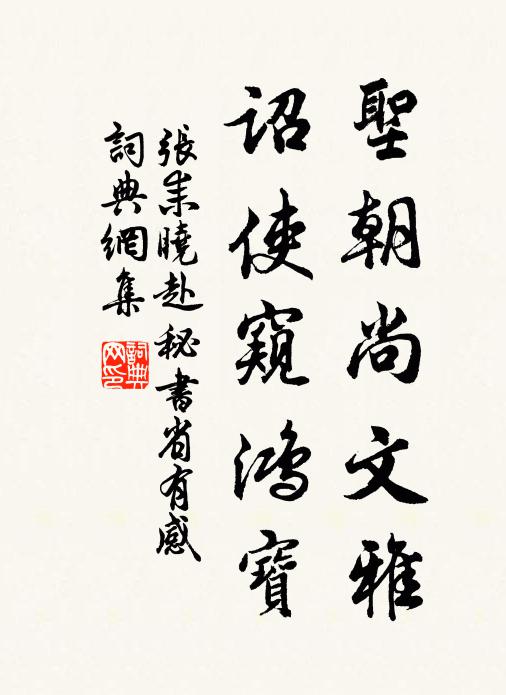 聖朝尚文雅
詔使窺鴻寶
張耒曉赴秘書省有感
詞典網集
詞典网印